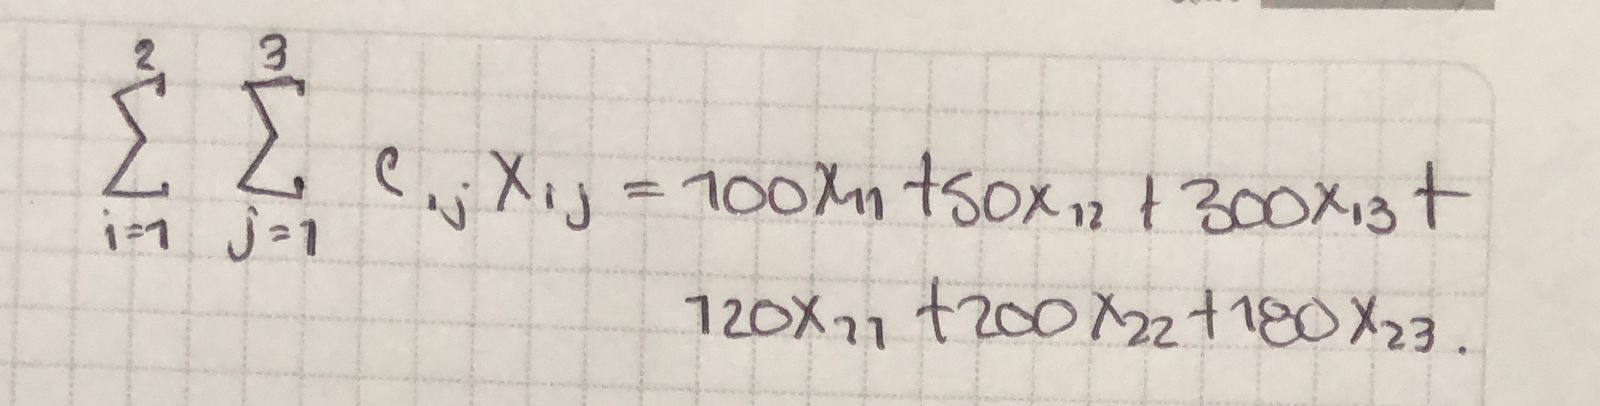 $\sum_{i=1}^{2} \sum_{j=1}^{3} c_{ij} x_{ij} = 100x_{11} + 50x_{12} + 300x_{13} +$
$120x_{21} + 200x_{22} + 180x_{23}.$